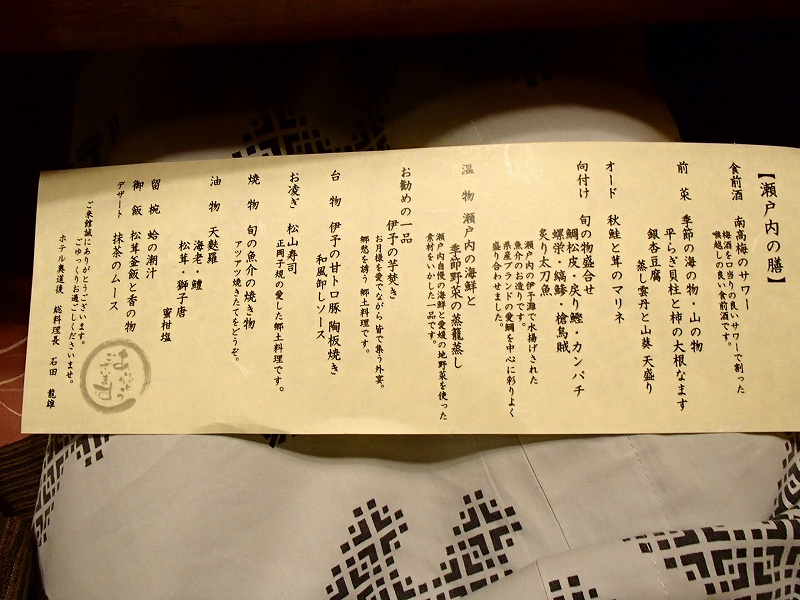 【瀬戸内の膳】
食前酒 南高梅のサワー
梅酒を口当りの良いサワーで割った
喉越しの良い食前酒です。
前菜 季節の海の物・山の物
平らぎ貝柱と柿の大根なます
銀杏豆腐
蒸し雲丹と山葵 天盛り
オード 秋鮭と茸のマリネ
向付け 旬の物盛合せ
鯛松皮・戻り鰹・カンパチ
螺栄・縞鯵・槍烏賊
炙り太刀魚
瀬戸内の伊予灘で水揚げされた
魚介のお造りです。
県産ブランドの愛鯛を中心に彩りよく
盛り合わせました。
温物 瀬戸内の海鮮と
季節野菜の蒸籠蒸し
瀬戸内自慢の海鮮と愛媛の地野菜を使った
素材をいかした一品です。
お勧めの一品
伊予の芋焚き
お月様を愛でながら皆で集う外宴。
郷愁を誘う郷土料理です。
台物 伊予の甘トロ豚 陶板焼き
和風卸しソース
お凌ぎ 松山寿司
正岡子規の愛した郷土料理です。
焼物 旬の魚介の焼き物
アツアツ焼きたてをどうぞ。
油物 天麩羅
海老・鱧 蜜柑塩
松茸・獅子唐
留椀 蛤の潮汁
御飯 松茸釜飯と香の物
デザート 抹茶のムース
ご来館誠にありがとうございます。
ごゆっくりお過ごしくださいませ。
ホテル奥道後 総料理長 石田 龍雄